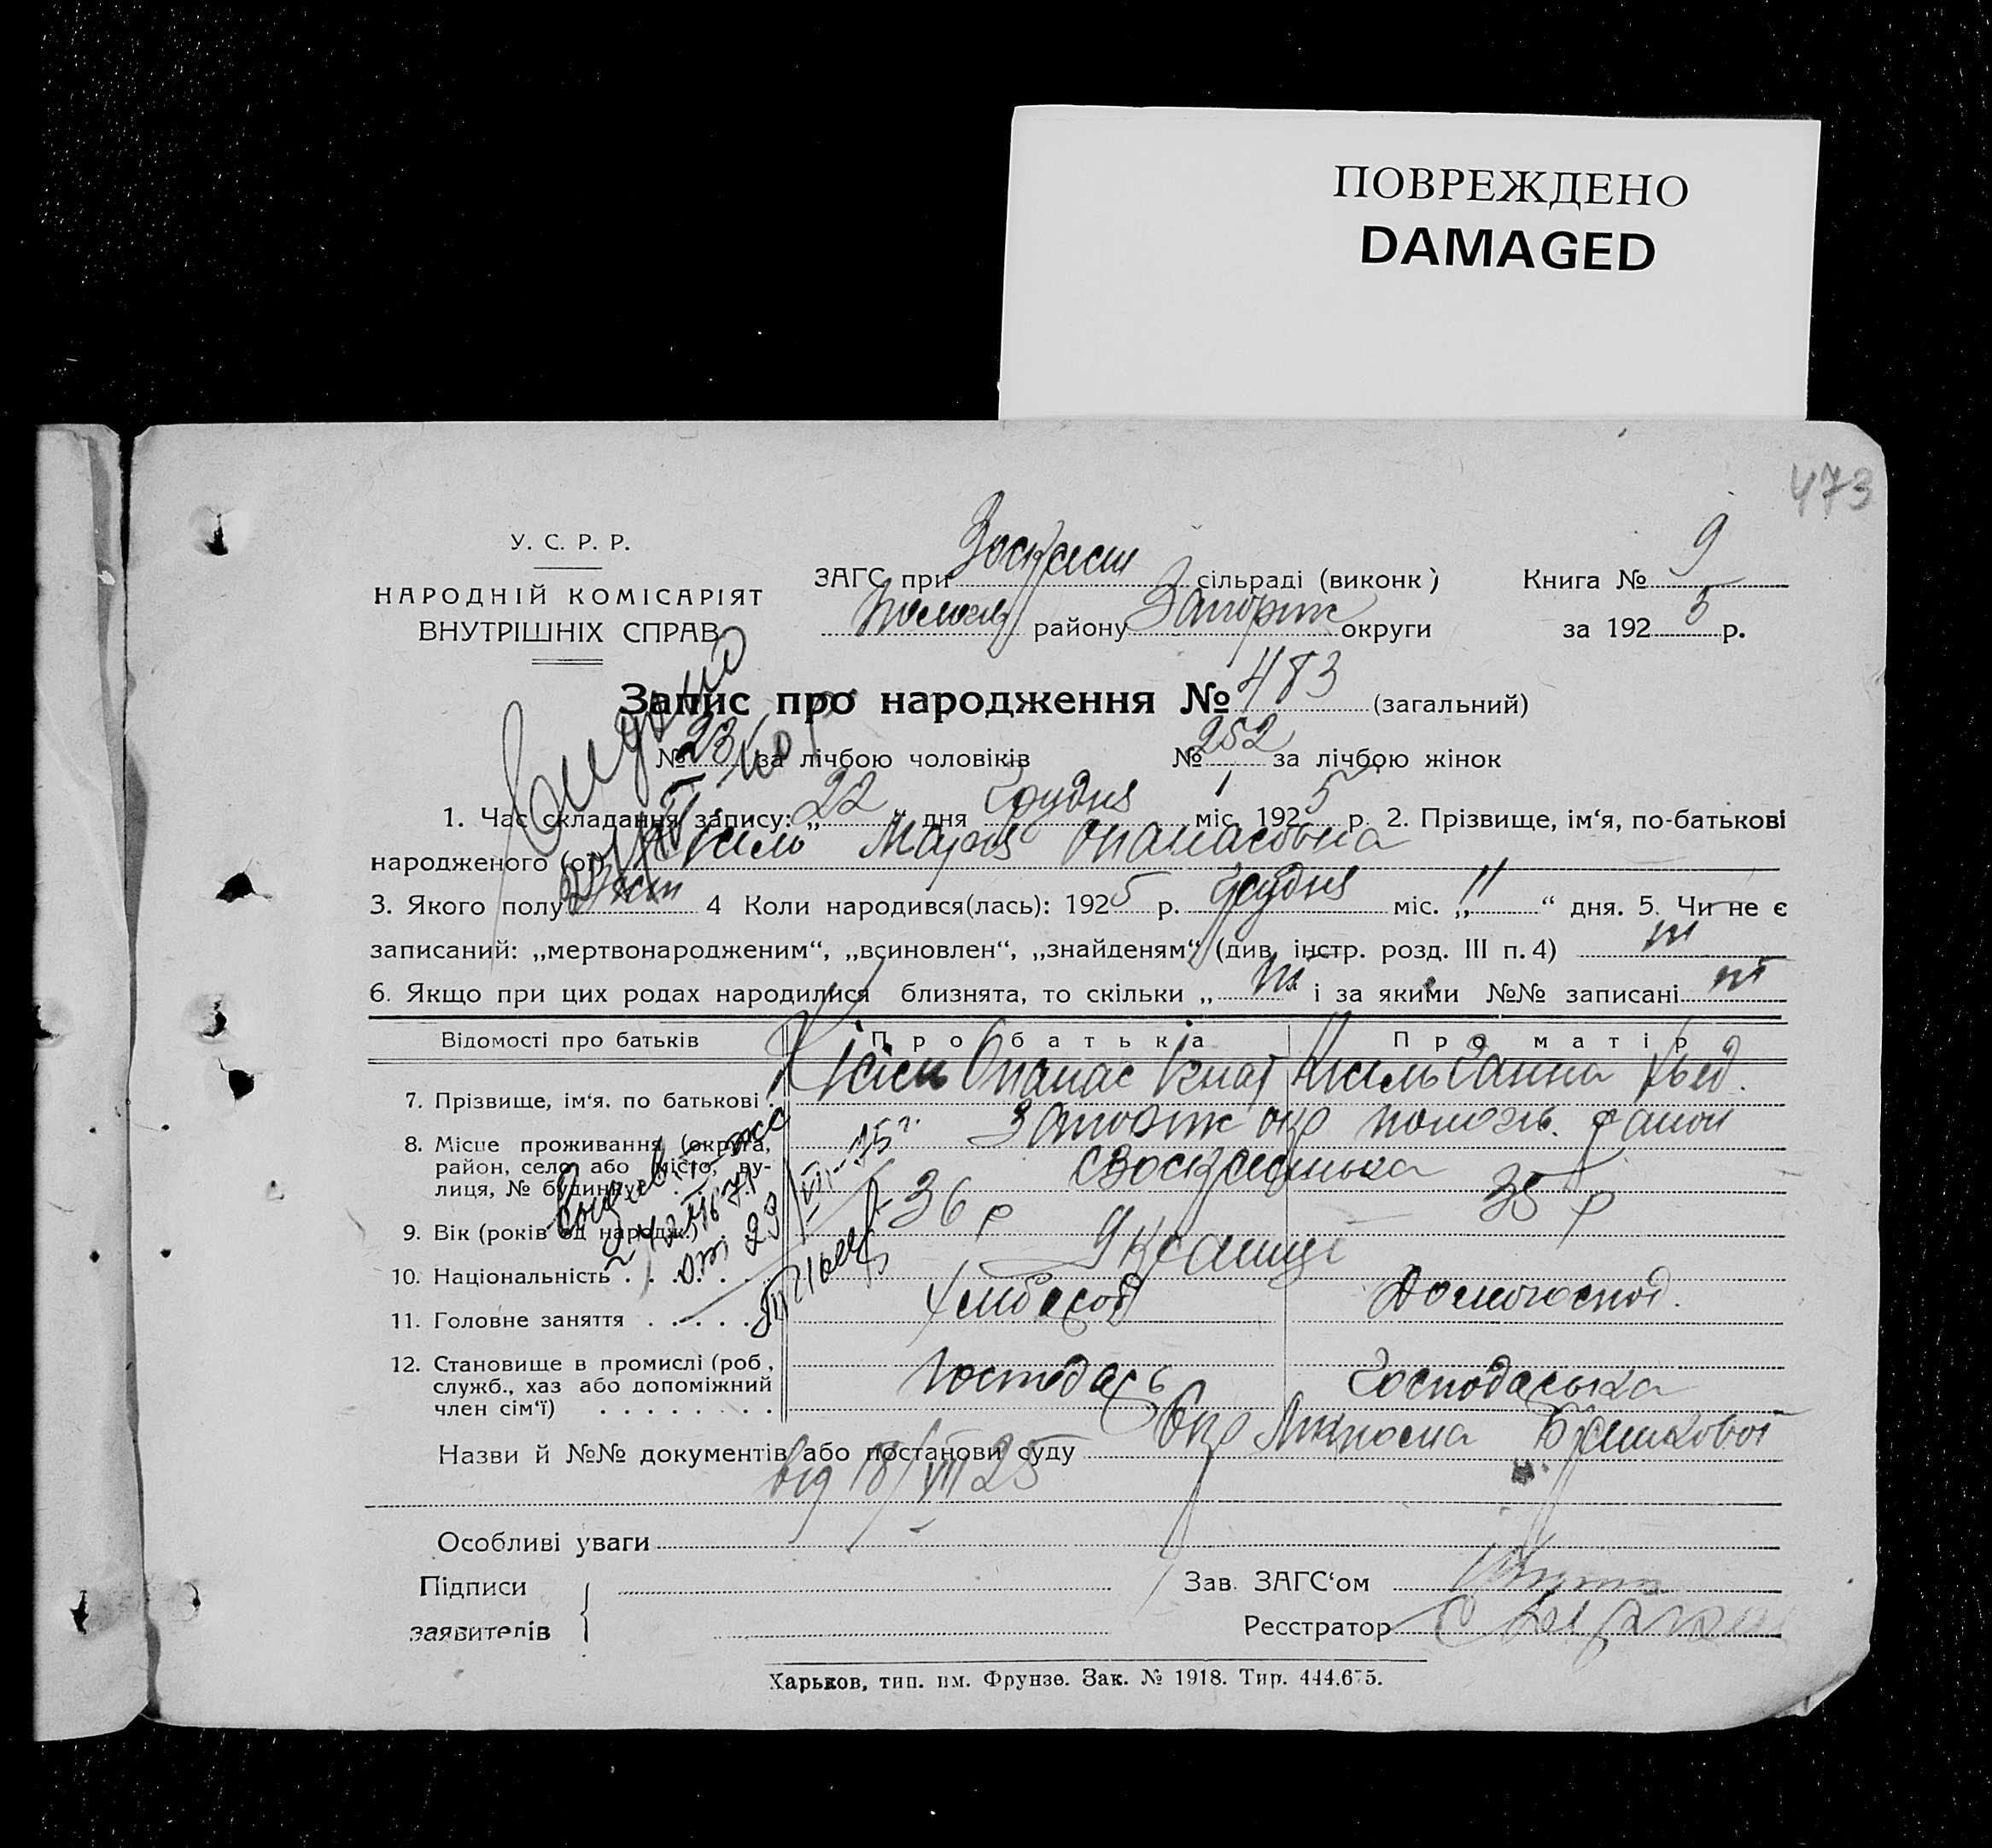 ПОВРЕЖДЕНО
DAMAGED
473
У. С. Р. Р.
НАРОДНІЙ КОМІСАРІЯТ
ВНУТРІШНІХ СПРАВ
ЗАГС при сільраді (виконк)
району Запоріж округи
Книга № 9
за 1925 р.
Запис про народження № 483 (загальний)
№ 23 за лічбою чоловіків № 252 за лічбою жінок
1. Час складання запису: „22 дня Грудня міс. 1925 р. 2. Прізвище, ім‘я, по-батькові
народженого (ої) Кисиль Марія Опанасовна
3. Якого полу жін 4 Коли народився(лась): 1925 р. Грудня міс. „11“ дня. 5. Чи не є
записаний: „мертвонародженим“, „всиновлен“, „знайденям“ (див. інстр. розд. III п. 4) ні
6. Якщо при цих родах народилися близнята, то скільки „ ні і за якими №№ записані ні
Відомості про батьків
Про батька
Про матір
7. Прізвище, ім‘я, по батькові Кісіль Опанас Ігнат Кисиль Ганна
8. Місце проживання (округа, Запоріж окр пологів. район
район, село або місто, ву-
лиця, № будинку)
с Воскресенька
9. Вік (років од народж.) 36 р 35 р
10. Національність Українці
11. Головне заняття Хлібороб Домогоспод.
12. Становище в промислі (роб,
служб., хаз або допоміжний
член сім‘ї) Господарь Господарька
Назви й №№ документів або постанови суду
від 18/VIII 25
Особливі уваги
Підписи
заявителів
Зав. ЗАГС‘ом
Ресстратор
Харьков, тип. им. Фрунзе. Зак. № 1918. Тир. 444.675.